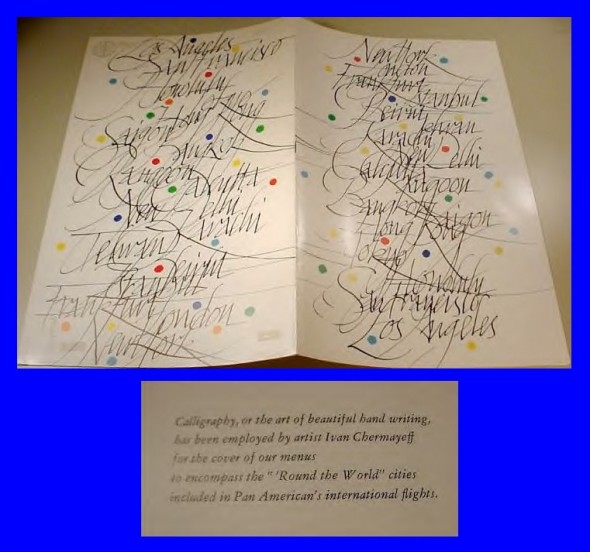 Los Angeles
San Francisco
Honolulu
Tokyo
Hong Kong
Saigon
Bangkok
Rangoon
Calcutta
New Delhi
Karachi
Tehran
Beirut
Istanbul
Frankfurt
London
New York
New York
London
Frankfurt
Istanbul
Beirut
Tehran
Karachi
New Delhi
Calcutta
Rangoon
Bangkok
Saigon
Hong Kong
Tokyo
Honolulu
San Francisco
Los Angeles
Calligraphy, or the art of beautiful hand writing,
has been employed by artist Ivan Chermayeff
for the cover of our menus
to encompass the "'Round the World" cities
included in Pan American's international flights.